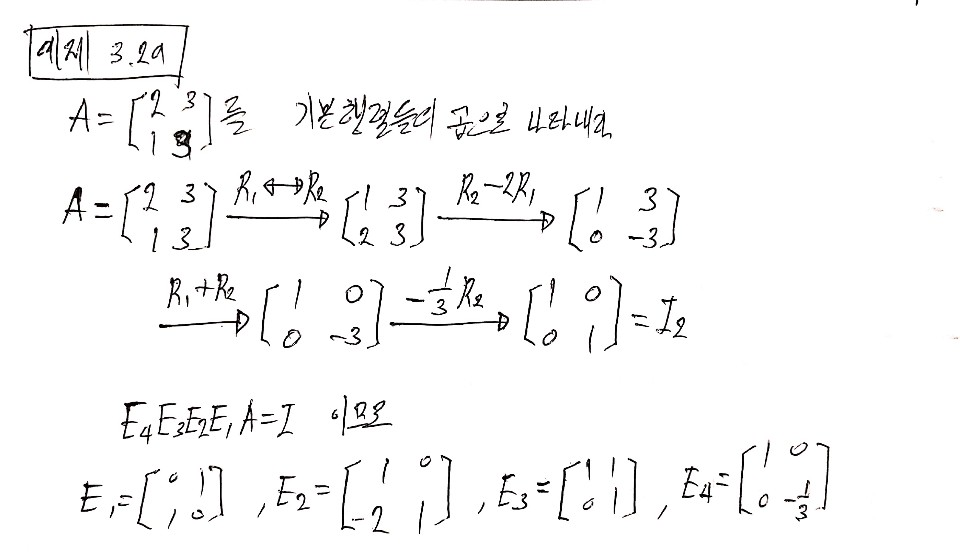 예제 3.29
A = [2 3; 1 3] 를 기본행렬들의 곱으로 나타내라
A = [2 3; 1 3] R₁↔R₂ → [1 3; 2 3] R₂-2R₁ → [1 3; 0 -3]
R₁+R₂ → [1 0; 0 -3] -1/3 R₂ → [1 0; 0 1] = I₂
E₄E₃E₂E₁A=I 이므로
E₁=[0 1; 1 0], E₂=[1 0; -2 1], E₃=[1 1; 0 1], E₄=[1 0; 0 -1/3]